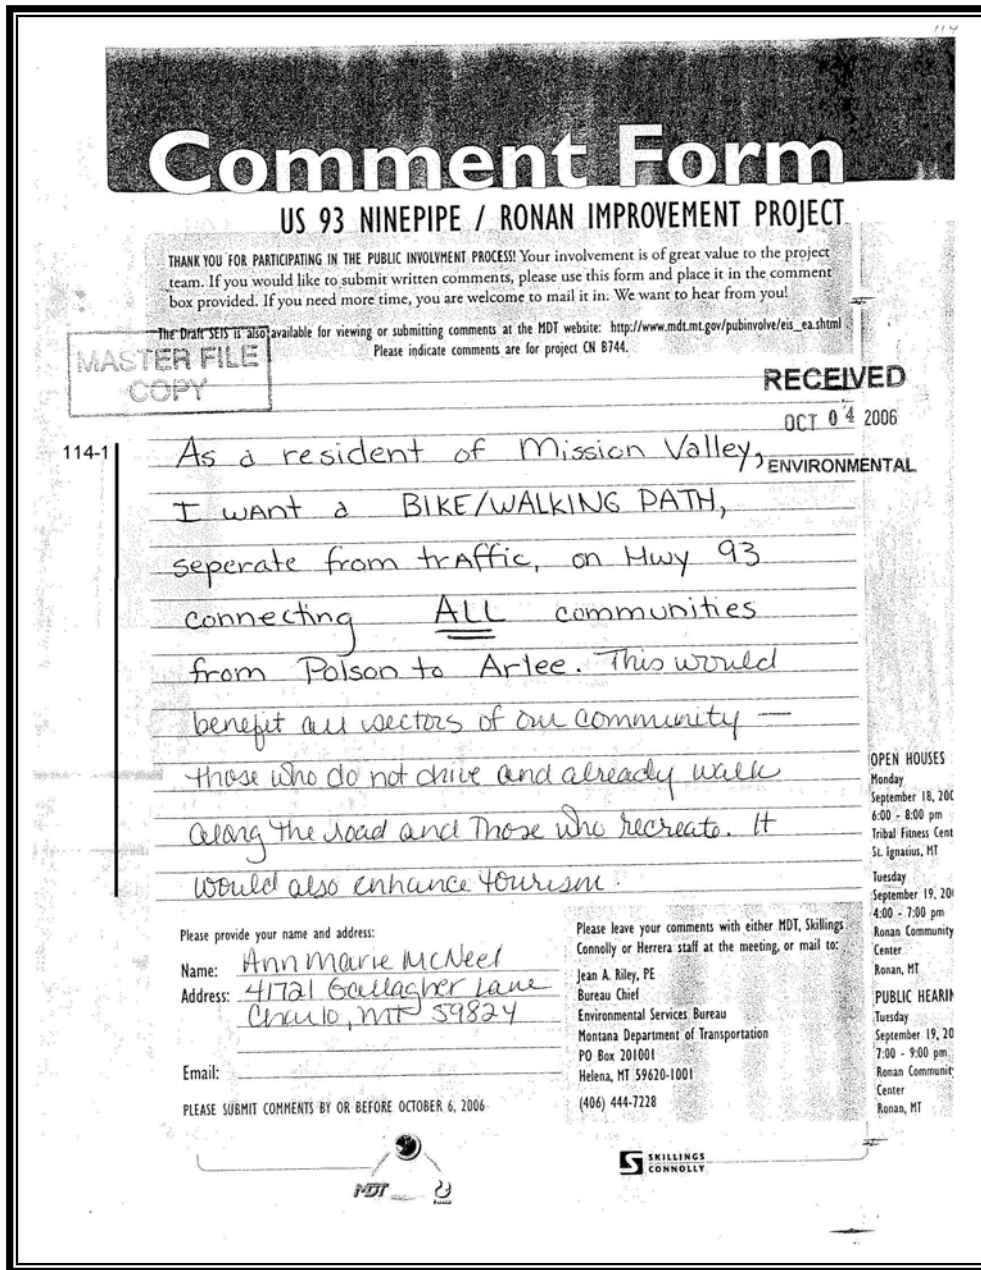 114
Comment Form
US 93 NINEPIPE / RONAN IMPROVEMENT PROJECT
THANK YOU FOR PARTICIPATING IN THE PUBLIC INVOLVMENT PROCESS! Your involvement is of great value to the project
team. If you would like to submit written comments, please use this form and place it in the comment
box provided. If you need more time, you are welcome to mail it in. We want to hear from you!
The Draft SEIS is also available for viewing or submitting comments at the MDT website: http://www.mdt.mt.gov/pubinvolve/eis_ea.shtml
Please indicate comments are for project CN B744.
MASTER FILE
COPY
RECEIVED
OCT 04 2006
ENVIRONMENTAL
114-1
As a resident of Mission Valley,
I want a BIKE/WALKING PATH,
seperate from traffic, on Hwy 93
connecting ALL communities
from Polson to Arlee. This would
benefit all sectors of our community —
those who do not drive and already walk
along the road and those who recreate. It
would also enhance tourism.
Please provide your name and address:
Name: Ann Marie McNeel
Address: 41721 Gallagher Lane
Charlo, MT 59824
Email:
PLEASE SUBMIT COMMENTS BY OR BEFORE OCTOBER 6, 2006
Please leave your comments with either MDT, Skillings
Connolly or Herrera staff at the meeting, or mail to:
Jean A. Riley, PE
Bureau Chief
Environmental Services Bureau
Montana Department of Transportation
PO Box 201001
Helena, MT 59620-1001
(406) 444-7228
OPEN HOUSES
Monday
September 18, 200
6:00 - 8:00 pm
Tribal Fitness Cent
St. Ignatius, MT
Tuesday
September 19, 20
4:00 - 7:00 pm
Ronan Community
Center
Ronan, MT
PUBLIC HEARIN
Tuesday
September 19, 20
7:00 - 9:00 pm
Ronan Communit
Center
Ronan, MT
MDT
SKILLINGS
CONNOLLY